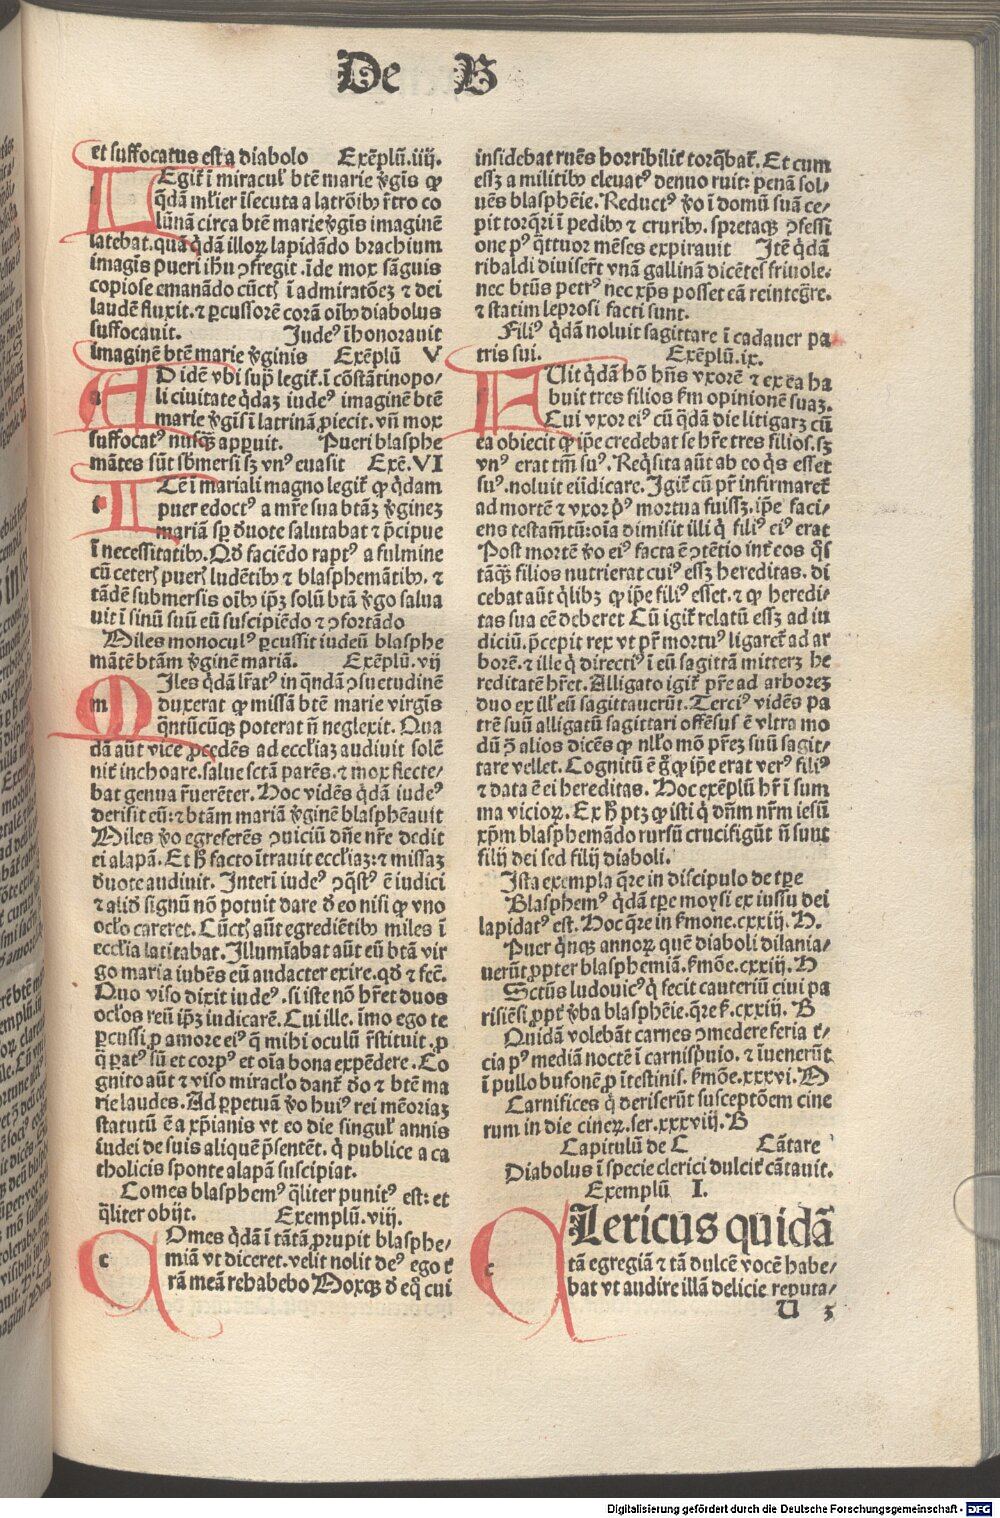 De B
et suffocatus est a diabolo Exēplū.iiij.
LEgit̄ ī miracul' btē marie v̄gīs ꝙ
q̄dā ml̓ier īsecuta a latrōibꝰ r̄tro co
lūnā circa btē marie v̄gīs imaginē
latebat.quā q̄dā illoꝝ lapidādo brachium
imagīs pueri ih̄u ꝯfregit.īde mox sāguis
copiose emanādo cūctꝭ ī admiratōeꝫ ⁊ dei
laudē fluxit.⁊ ꝑcussorē corā oībꝰ diabolus
suffocauit. Judeꝰ īhonorauit
imaginē btē marie v̄ginis Exēplū V
AD idē vbi supͣ legit̄.ī cōstātinopo-
li ciuitate q̄daꝫ iudeꝰ imaginē btē
marie v̄gīs ī latrinā ꝓiecit.vn̄ mox
suffocatꝰ nusꝗ̄ apꝑuit. Pueri blasphe
mātes sūt sb̄mersi sꝫ vnꝰ euasit Exē.VI
ITē ī mariali magno legit̄ ꝙ q̄dam
puer edoctꝰ a mr̄e sua btāꝫ v̄gineꝫ
mariā sꝑ d̓uote salutabat ⁊ p̄cipue
ī necessitatibꝰ. Qd̓ faciēdo raptꝰ a fulmine
cū ceterꝭ puerꝭ ludētibꝰ ⁊ blasphemātibꝰ. ⁊
tādē submersis oībꝰ ip̄ꝫ solū btā v̄go salua
uit ī sinū suū eū suscipiēdo ⁊ ꝯfortādo
Miles monoculꝰ ꝑcussit iudeū blasphe
mātē btām v̄ginē mariā. Exēplū.vij
MIles q̄dā lr̄atꝰ in q̄ndā ꝯsuetudinē
duxerat ꝙ missā btē marie virgīs
qn̄tūcūqꝫ poterat n̄ neglexit. Qua
dā aūt vice ꝓcedēs ad eccl̓iaꝫ audiuit solē
nit̄ inchoare.salue sct̄a parēs.⁊ mox flecte-
bat genua r̄uerēter. Hoc vidēs q̄dā iudeꝰ
derisit eū:⁊ btām mariā v̄ginē blasphēauit
Miles v̓o egreferēs ꝯuiciū dn̄e nr̄e dedit
ei alapā. Et h̓ facto ītrauit eccl̓iaꝫ:⁊ missaꝫ
d̓uote audiuit. Interī iudeꝰ ꝯq̄stꝰ ē iudici
⁊ aliud̓ signū nō potuit dare d̓ eo nisi ꝙ vno
ocl̓o careret. Cūctꝭ aūt egrediētibꝰ miles ī
eccl̓ia latitabat. Illumīabat aūt eū btā vir
go maria iubēs eū audacter exire.qd̓ ⁊ fec̄.
Quo viso dixit iudeꝰ.si iste nō hr̄et duos
ocl̓os reū ip̄ꝫ iudicarē. Cui ille.īmo ego te
ꝑcussi.ꝓ amore eiꝰ q̄ mihi oculū r̄stituit.ꝓ
q̄ ꝑatꝰ sū ⁊ corpꝰ ⁊ oīa bona expēdere. Co
gnito aūt ⁊ viso miracl̓o dant̄ d̓o ⁊ btē ma
rie laudes. Ad ꝑpetuā v̓o huiꝰ rei mēoriaꝫ
statutū ē a xp̄ianis vt eo die singul' annis
iudei de suis aliquē p̄sentēt. q̄ publice a ca
tholicis sponte alapā suscipiat.
Comes blasphemꝰ q̄liter punitꝰ est: et
q̄liter obijt. Exemplū.viij.
COmes q̄dā ī tātā ꝓrupit blasphe-
miā vt diceret.velit nolit deꝰ ego t̄
rā meā rehabebo Moxqꝫ d̓ eq̄ cui
insidebat ruēs horribilit̄ torq̄bat̄. Et cum
essꝫ a militibꝰ eleuatꝰ denuo ruit: penā sol-
uēs blasphēie. Reductꝰ v̓o ī domū suā ce-
pit torq̄ri ī pedibꝰ ⁊ cruribꝰ. spretaqꝫ ꝯfessi
one pꝰ q̄ttuor mēses expirauit Itē q̄dā
ribaldi diuiser̄t vnā gallinā dicētes friuole-
nec btūs petrꝰ nec xp̄s posset eā reintegr̄e.
⁊ statim leprosi facti sunt.
Filiꝰ q̄dā noluit sagittare ī cadauer pa
tris sui. Exēplū.ix.
FUit q̄dā hō hn̄s vxorē ⁊ ex ea ha
buit tres filios s̓m opinionē suaꝫ.
Cui vxor eiꝰ cū q̄dā die litigarꝫ cū
ea obiecit ꝙ ip̄e credebat se hr̄e tres filios.sꝫ
vnꝰ erat tm̄ suꝰ. Reqͥsita aūt ab eo qͥs esset
suꝰ.noluit eiīdicare. Igit̄ cū pr̄ infirmaret̄
ad mortē ⁊ vxor pꝰ mortua fuissꝫ.ip̄e faci-
ens testam̄tū:oīa dimisit illi q̄ filiꝰ eiꝰ erat
Post mortē v̓o eiꝰ facta ē ꝯtētio int̄ eos qͦs
tāqꝫ filios nutrierat cuiꝰ essꝫ hereditas. di
cebat aūt q̄libꝫ ꝙ ip̄e filiꝰ esset.⁊ ꝙ heredi-
tas sua eē deberet Cū igit̄ relatū essꝫ ad iu
diciū.p̄cepit rex vt pr̄ mortuꝰ ligaret̄ ad ar
borē.⁊ ille q̄ directiꝰ ī eū sagittā mitterꝫ he
reditatē hr̄et. Alligato igit̄ pr̄e ad arboreꝫ
duo ex ill̓ eū sagittauerūt. Terciꝰ vidēs pa
trē suū alligatū sagittari offēsus ē vltra mo
dū ⁊ alios dicēs ꝙ nll̓o mō pr̄eꝫ suū sagit-
tare vellet. Cognitū ē g̊ ꝙ ip̄e erat verꝰ filiꝰ
⁊ data ē ei hereditas. Hoc exēplū hr̄ ī sum
ma vicioꝝ. Ex h̓ ptꝫ ꝙ isti q̄ dn̄m nr̄m iesū
xp̄m blasphemādo rursū crucifigūt n̄ sunt
filij dei sed filij diaboli.
Ista exempla q̄re in discipulo de tꝑe
Blasphemꝰ q̄dā tꝑe moysi ex iussu dei
lapidatꝰ est. Hoc q̄re in s̓mone.cxxiij. H.
Puer q̄nqꝫ annoꝝ quē diaboli dilania-
uerūt ꝓpter blasphemiā.s̓mōe.cxxiij. H
Sctūs ludouicꝰ q̄ fecit cauteriū ciui pa
risiēsi ꝓpt̄ v̓ba blasphēie.q̄re s̓.cxxiij. B
Quidā volebāt carnes ꝯmedere feria t̄-
cia pꝰ mediā noctē ī carnispͥuio. ⁊ īuenerūt
ī pullo bufonē ꝓ ītestinis. s̓mōe.xxxvi. M
Carnifices q̄ deriserūt susceptōem cine
rum in die cineꝝ.ser.xxxviij. B
Capitulū de C Cātare
Diabolus ī specie clerici dulcit̄ cātauit.
Exemplū I.
CLericus quidā
tā egregiā ⁊ tā dulcē vocē habe-
bat vt audire illā delicie reputa-
U 3
Digitalisierung gefördert durch die Deutsche Forschungsgemeinschaft - DFG